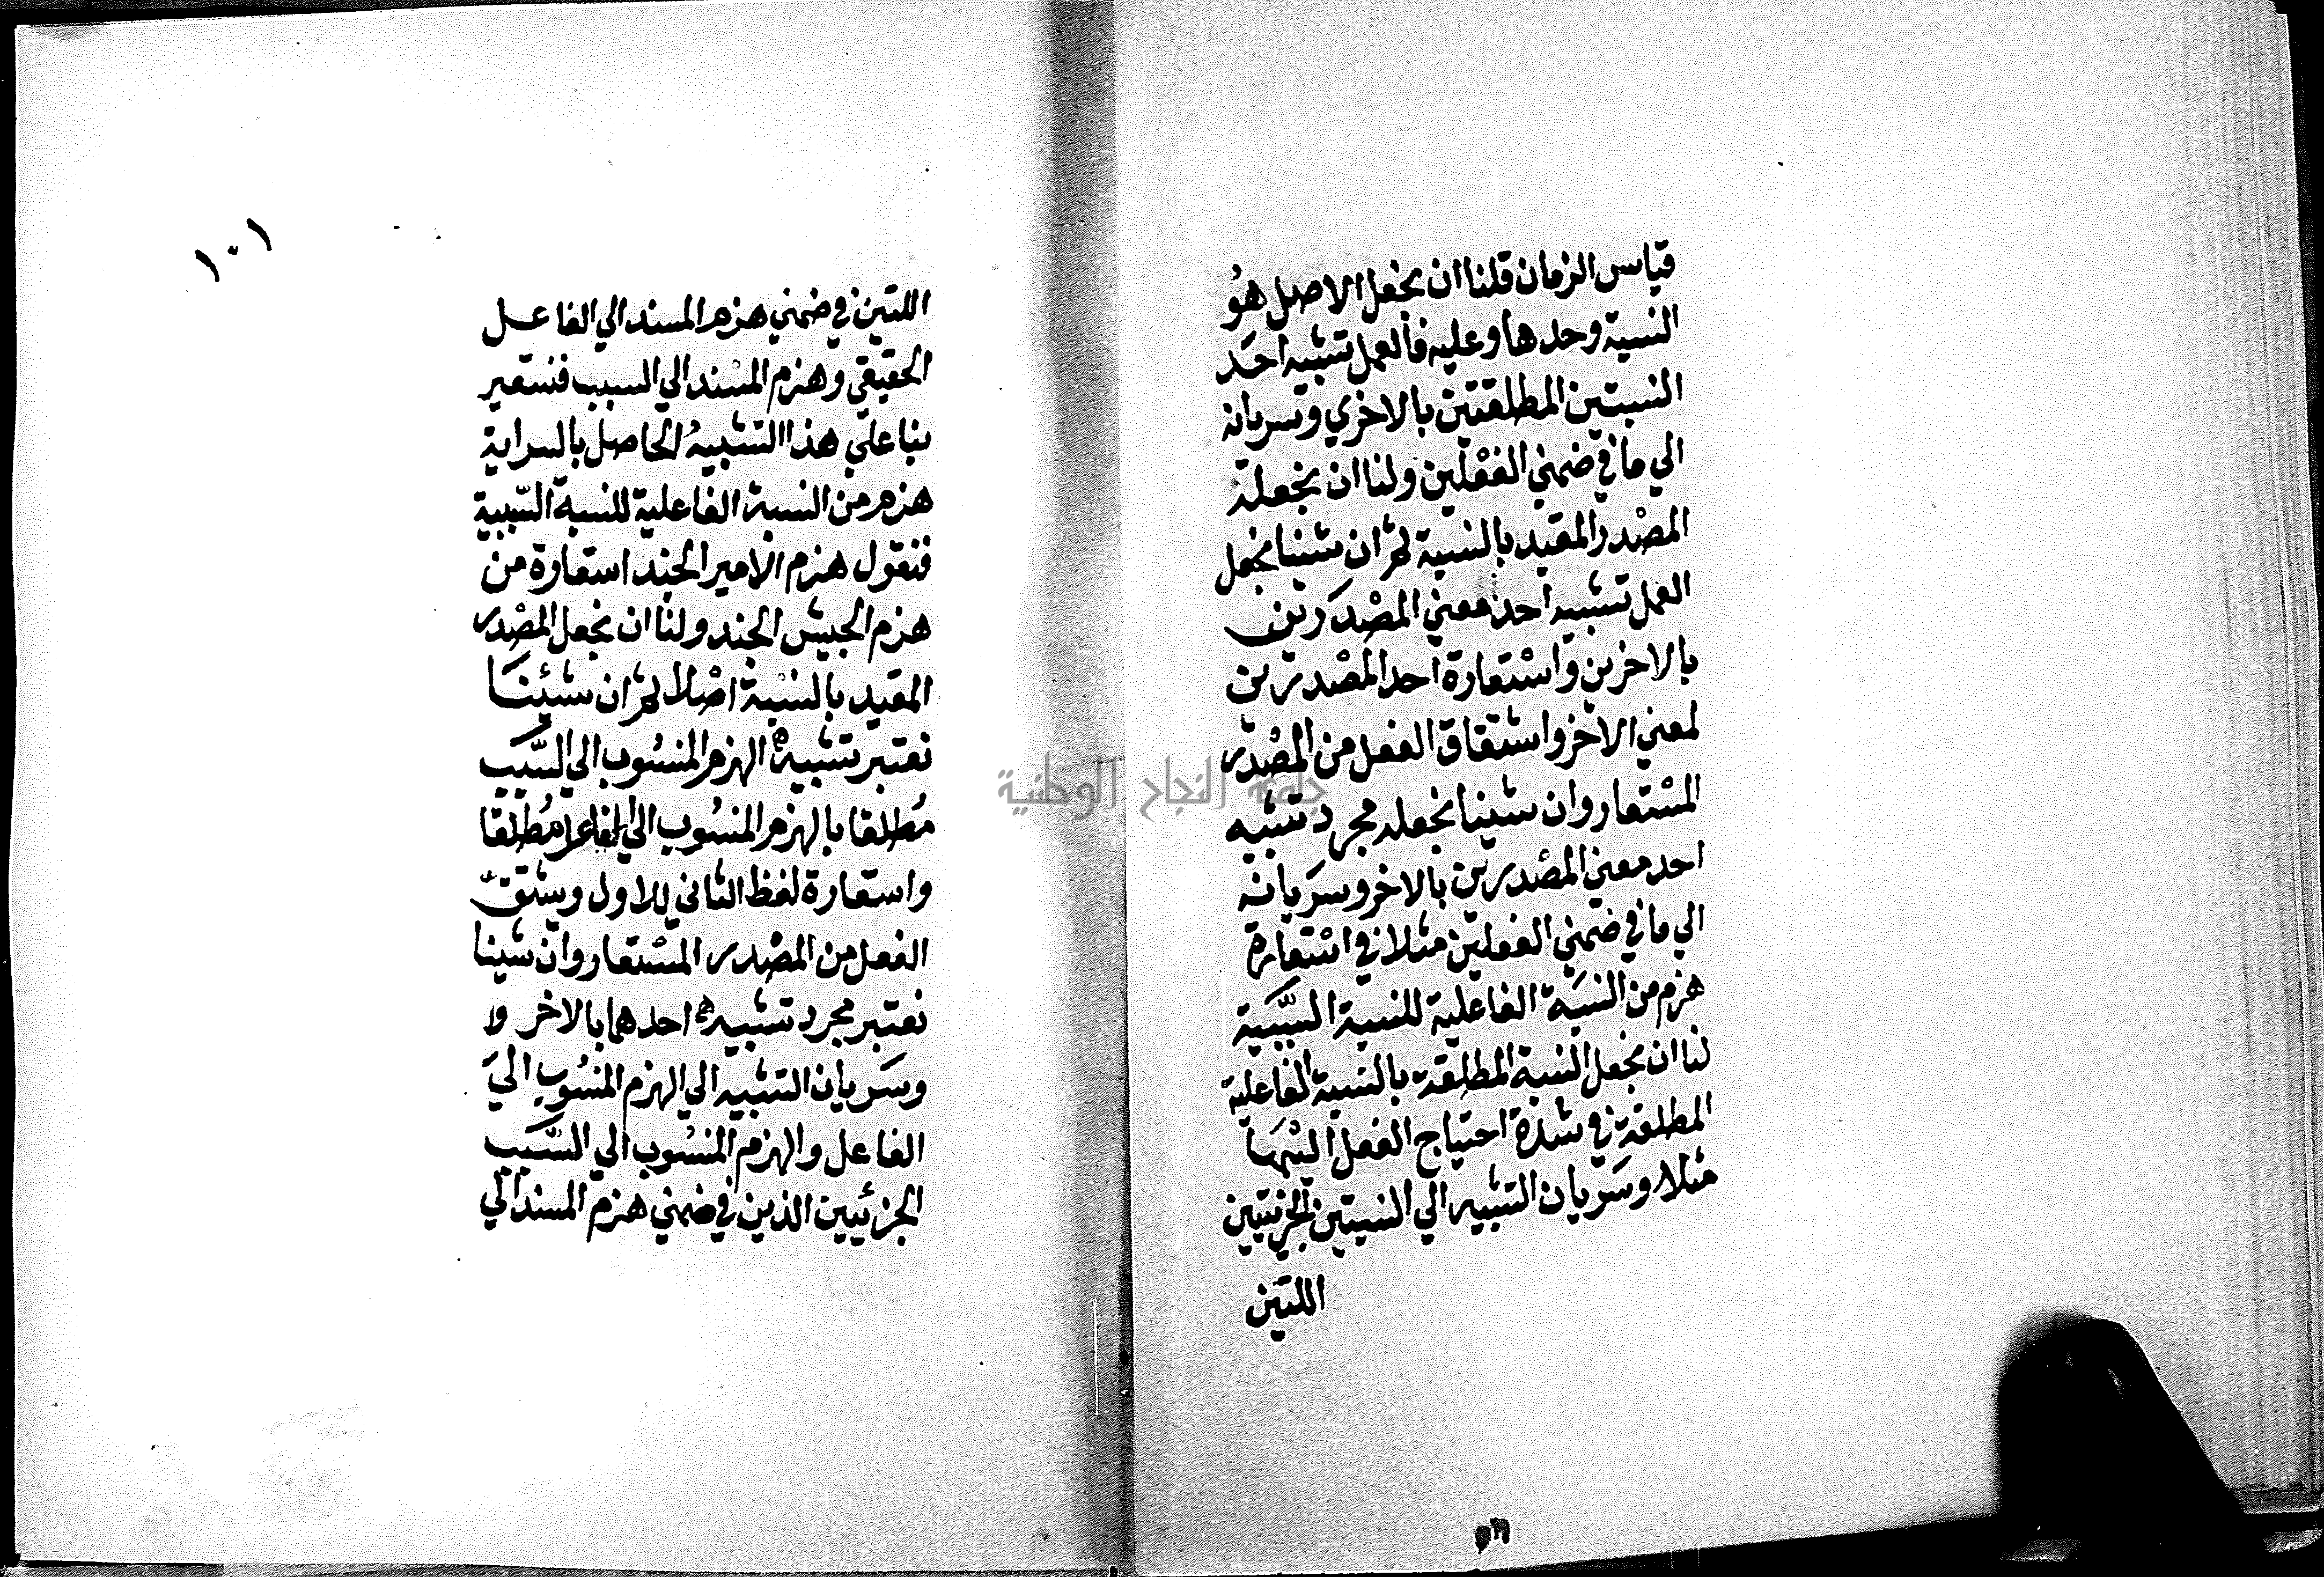 قياس الزمان قلنا ان نجعل الاصل هو
النسبة وحدها وعليه فالعمل تشبيه احد
النسبتين المطلقتين بالاخري وسريانه
الي ما في ضمني الفعلين ولنا ان نجعله
المصدر المقيد بالنسبة ثم ان شينا نجعل
العمل تشبيه احد معني المصدرين
بالاخرين واستعارة احد المصدرين
لمعني الاخر واشتقاق الفعل من المصدر
المستعار وان شينا نجعله مجرد تشبيه
احد معني المصدرين بالاخر وسريانه
الي ما في ضمني الفعلين مثلا في استعارة
هزم من النسبة الفاعلية للنسبة السببية
لنا ان نجعل النسبة المطلقة بالنسبة الفاعلية
المطلقة في شدة احتياج الفعل اليها
مثلا وسريان التشبيه الي النسبتين الجزئيتين
اللتين
١٠١
اللتين في ضمني هزم المسند الي الفاعل
الحقيقي وهزم المسند الي السبب فنستعير
بنا علي هذا التشبيه الحاصل بالسراية
هزم من النسبة الفاعلية للنسبة السببية
فنقول هزم الامير الجند استعارة من
هزم الجيش الجند ولنا ان نجعل المصدر
المقيد بالنسبة اصلا ثم ان شئنا
نعتبر تشبيه الهزم المنسوب الي السبب
مطلقا بالهزم المنسوب الي الفاعل مطلقا
واستعارة لفظ الثاني للاول ويشتق
الفعل من المصدر المستعار وان شينا
نعتبر مجرد تشبيه احدهما بالاخر و
وسريان التشبيه الي الهزم المنسوب الي
الفاعل والهزم المنسوب الي السبب
الجزئيين الذين في ضمني هزم المسند الي
جامعة النجاح الوطنية